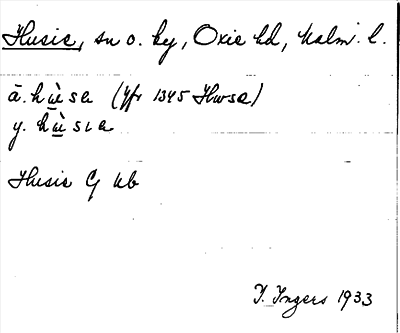 Husie, sn o. by, Oxie hd, Malm. l.
ā. hùsa (jfr 1345 Hwse)
y. hùsıa
Husie G kb
I. Ingers 1933